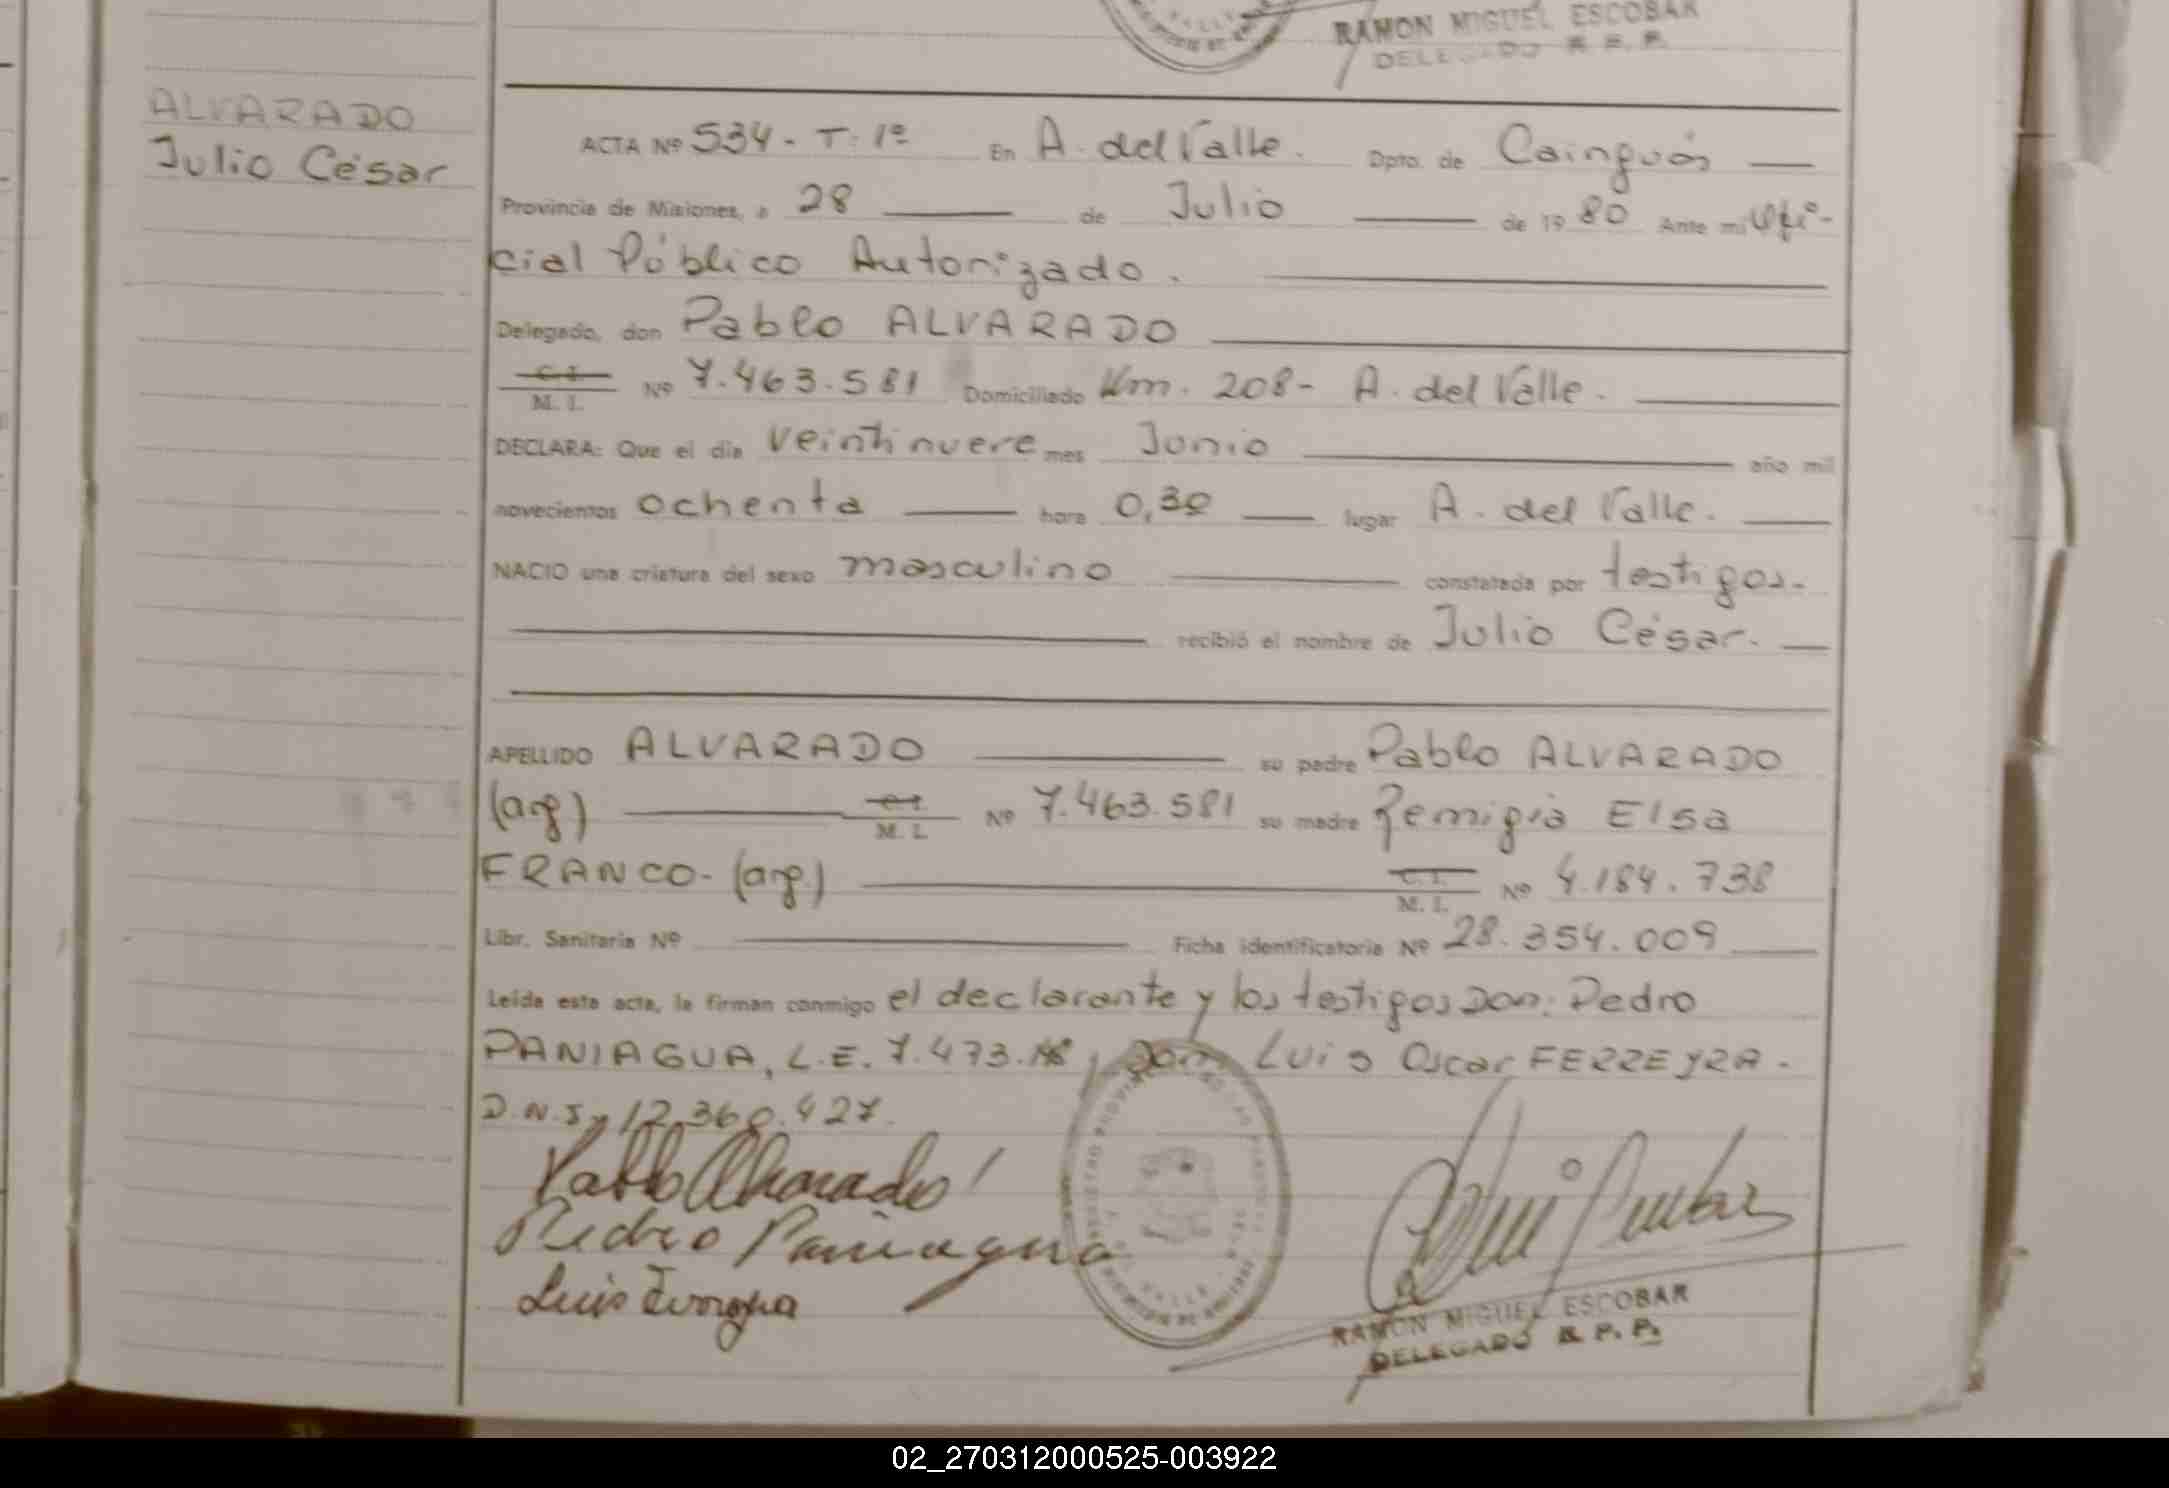 RAMON MIGUEL ESCOBAR
DELEGADO R. P. P.
ALVARADO
Julio César
ACTA Nº 534 - T. 1º En A. del Valle. Dpto. de Cainguás
Provincia de Misiones, a 28 de Julio de 19 80 Ante mi Ofi-
cial Público Autorizado.
Delegado, don Pablo ALVARADO
C. I.
M. I. Nº 7.463.581 Domiciliado Km. 208 - A. del Valle.
DECLARA: Que el día veintinueve mes Junio año mil
novecientos ochenta hora 0,30 lugar A. del Valle.
NACIO una criatura del sexo masculino constatada por testigos.
recibió el nombre de Julio César.
APELLIDO ALVARADO su padre Pablo ALVARADO
(arg) C. I.
M. I. Nº 7.463.581 su madre Remigia Elsa
FRANCO - (arg.) C. I.
M. I. Nº 4.184.738
Libr. Sanitaria Nº Ficha identificatoria Nº 28.354.009
Leída esta acta, la firman conmigo el declarante y los testigos Don: Pedro
PANIAGUA, L.E. 7.473. Don Luis Oscar FERREYRA.
D.N.I. 12.360.427.
Pablo Alvarado
Pedro Paniagua
Luis Ferreyra
RAMON MIGUEL ESCOBAR
DELEGADO R. P. P.
02_270312000525-003922